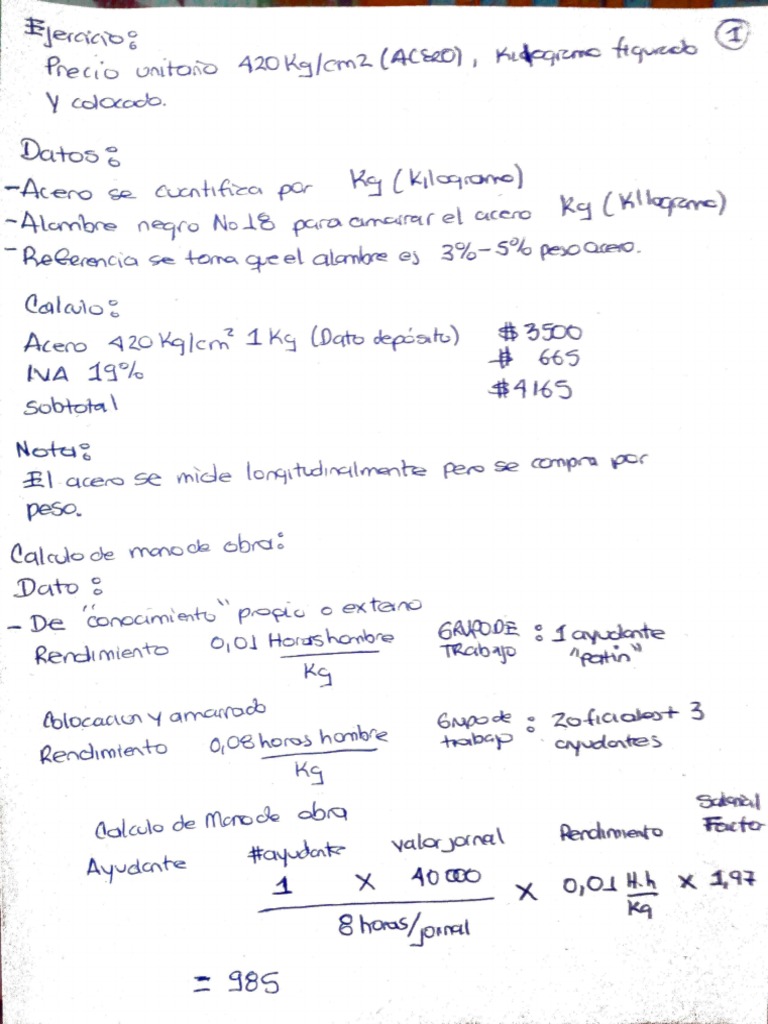 1
Ejercicio:
Precio unitario 420 Kg/cm2 (ACERO), Kilogramo figurado
Y colocado.
Datos:
- Acero se cuantifiza por Kg (Kilogramo)
- Alambre negro No 18 para amarrar el acero Kg (Kilogramo)
- Referencia se toma que el alambre es 3% - 5% peso acero.
Calculo:
Acero 420 Kg/cm² 1 Kg (Dato depósito) $ 3500
IVA 19% $ 665
Subtotal $ 4165
Nota:
El acero se mide longitudinalmente pero se compra por
peso.
Calculo de mano de obra:
Dato:
- De "conocimiento" propio o externo
Rendimiento 0,01 Horas hombre / Kg GRUPO DE TRabajo : 1 ayudante "Patin"
Colocacion y amarrado
Rendimiento 0,08 horas hombre / Kg Grupo de trabajo : 2 oficiales + 3 ayudantes
Calculo de Mano de obra
Ayudante #ayudante valor jornal Rendimiento Salarial Factor
1 X 40 000 / 8 horas/jornal X 0,01 H.h / Kg X 1,97
= 985